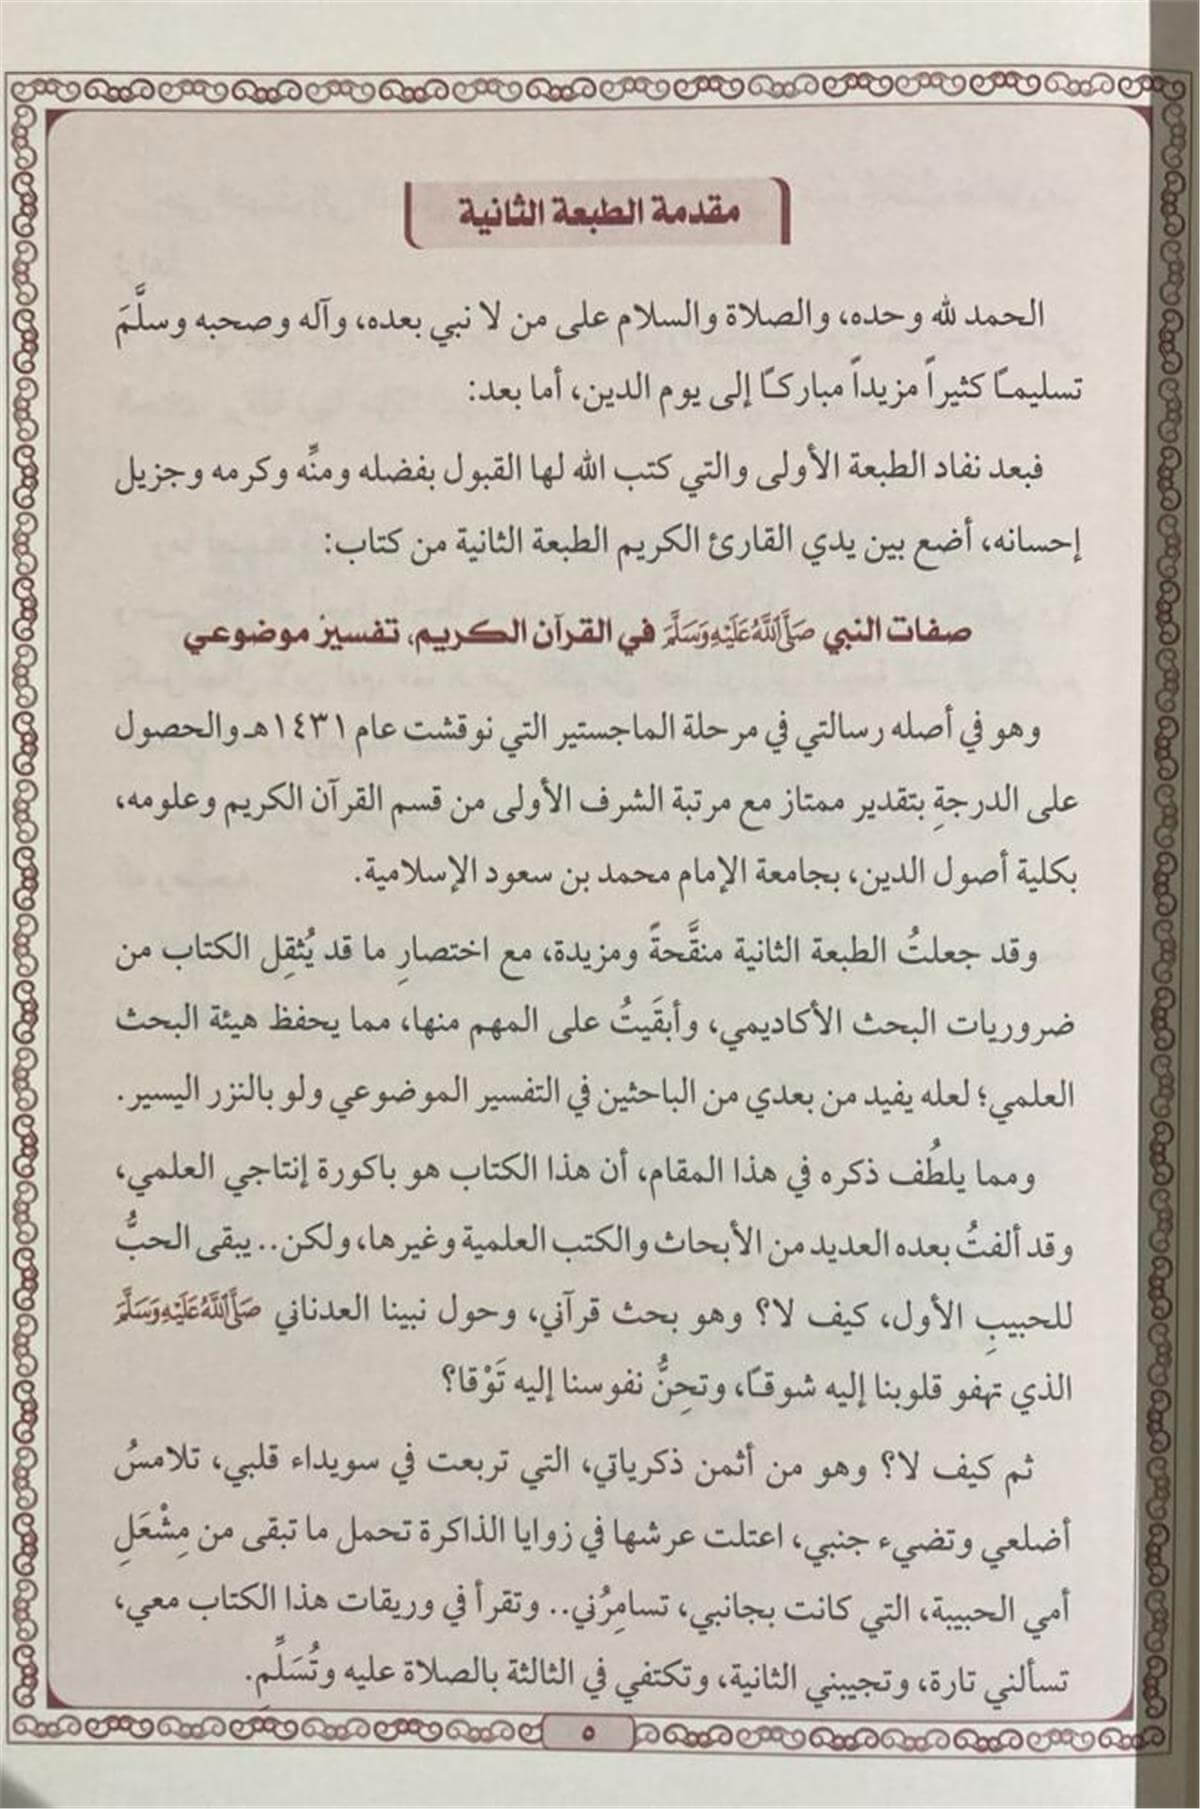 مقدمة الطبعة الثانية
الحمد لله وحده، والصلاة والسلام على من لا نبي بعده، وآله وصحبه وسلَّمَ
تسليمًا كثيراً مزيداً مباركًا إلى يوم الدين، أما بعد:
فبعد نفاد الطبعة الأولى والتي كتب الله لها القبول بفضله ومنِّه وكرمه وجزيل
إحسانه، أضع بين يدي القارئ الكريم الطبعة الثانية من كتاب:
صفات النبي صَلَّى اللَّهُ عَلَيْهِ وَسَلَّمَ في القرآن الكريم، تفسير موضوعي
وهو في أصله رسالتي في مرحلة الماجستير التي نوقشت عام ١٤٣١هـ والحصول
على الدرجةِ بتقدير ممتاز مع مرتبة الشرف الأولى من قسم القرآن الكريم وعلومه،
بكلية أصول الدين، بجامعة الإمام محمد بن سعود الإسلامية.
وقد جعلتُ الطبعة الثانية منقَّحةً ومزيدة، مع اختصارِ ما قد يُثقِل الكتاب من
ضروريات البحث الأكاديمي، وأبقَيتُ على المهم منها، مما يحفظ هيئة البحث
العلمي؛ لعله يفيد من بعدي من الباحثين في التفسير الموضوعي ولو بالنزر اليسير.
ومما يلطُف ذكره في هذا المقام، أن هذا الكتاب هو باكورة إنتاجي العلمي،
وقد ألفتُ بعده العديد من الأبحاث والكتب العلمية وغيرها، ولكن.. يبقى الحبُّ
للحبيبِ الأول، كيف لا؟ وهو بحث قرآني، وحول نبينا العدناني صَلَّى اللَّهُ عَلَيْهِ وَسَلَّمَ
الذي تهفو قلوبنا إليه شوقًا، وتحِنُّ نفوسنا إليه تَوْقا؟
ثم كيف لا؟ وهو من أثمن ذكرياتي، التي تربعت في سويداء قلبي، تلامسُ
أضلعي وتضيء جنبي، اعتلت عرشها في زوايا الذاكرة تحمل ما تبقى من مِشْعَلِ
أمي الحبيبة، التي كانت بجانبي، تسامِرُني.. وتقرأ في وريقات هذا الكتاب معي،
تسألني تارة، وتجيبني الثانية، وتكتفي في الثالثة بالصلاة عليه وتُسَلِّمِ.
٥